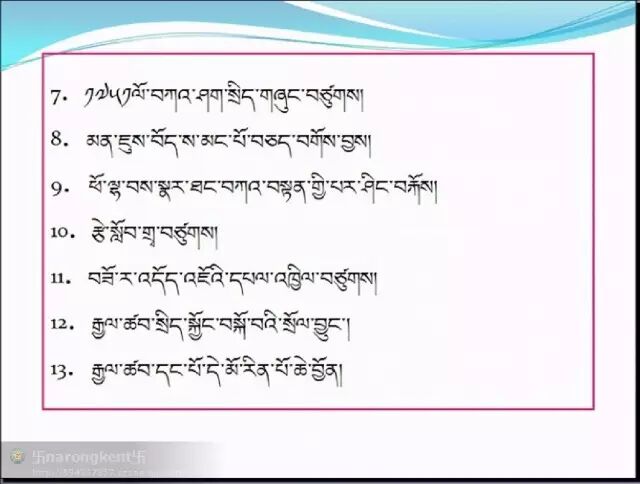 7. ༡༧༥༡ལོ་བཀའ་ཤག་སྲིད་གཞུང་བཙུགས།
8. མན་ཇུས་བོད་ས་མང་པོ་བཅད་བགོས་བྱས།
9. ཕོ་ལྷ་བས་སྣར་ཐང་བཀའ་བསྟན་གྱི་པར་ཤིང་བརྐོས།
10. རྩེ་སློབ་གྲྭ་བཙུགས།
11. བཟོ་ར་འདོད་འཇོའི་དཔལ་འཁྱིལ་བཙུགས།
12. རྒྱལ་ཚབ་སྲིད་སྐྱོང་བསྐོ་བའི་སྲོལ་བྱུང་།
13. རྒྱལ་ཚབ་དང་པོ་དེ་མོ་རིན་པོ་ཆེ་བྱོན།
卐narongkent卐